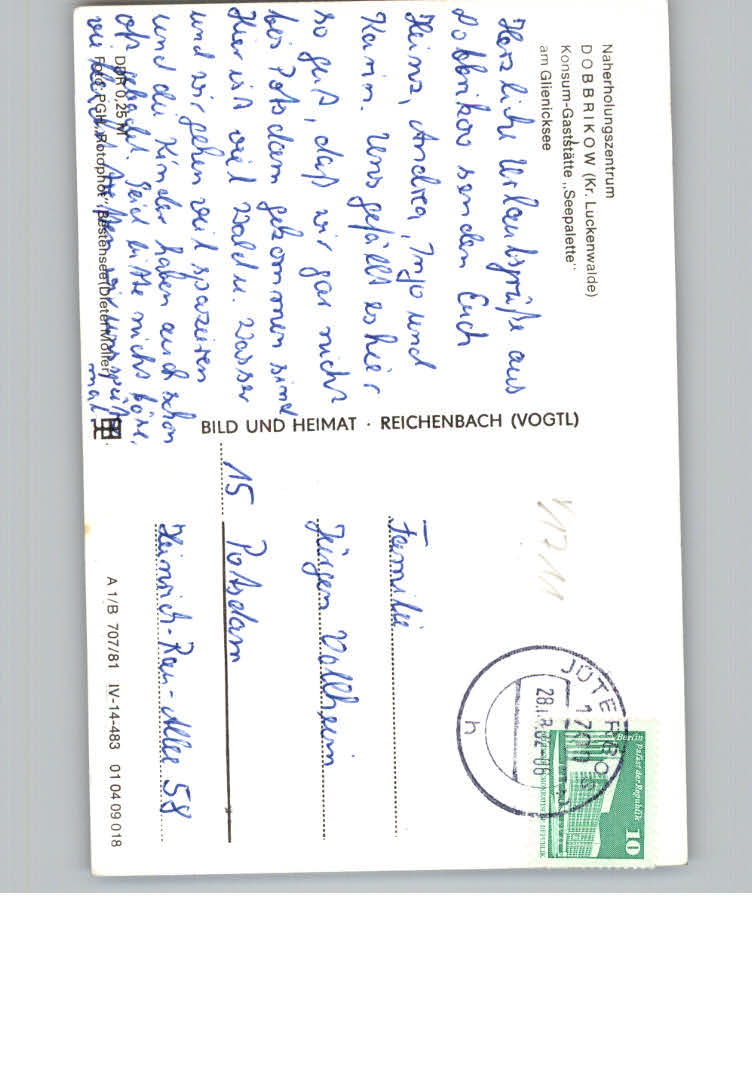 Naherholungszentrum
DOBBRIKOW (Kr. Luckenwalde)
Konsum-Gaststätte „Seepalette"
am Glienicksee
Herzliche Urlaubsgrüße aus
Dobbrikow senden Euch
Heinz, Andrea, Ingo und
Karin. Uns gefällt es hier
so gut, daß wir gar nicht
bei Potsdam gekommen sind
Hier ist viel Wald u. Wasser
und wir gehen viel spazieren
und die Kinder haben auch schon
oft gebadet. Seid bitte nicht böse,
vielleicht treffen wir uns später
mal.
DDR 0,25 M
Foto: PGH „Rotophot", Bestensee (Dieter Möller)
BILD UND HEIMAT · REICHENBACH (VOGTL)
JÜTERBOG
1700
28.
82-06
h
Berlin Palast der Republik
10
Familie
Jürgen Vollheim
15 Potsdam
Heinrich-Rau-Allee 58
A 1/B 707/81 IV-14-483 01 04 09 018